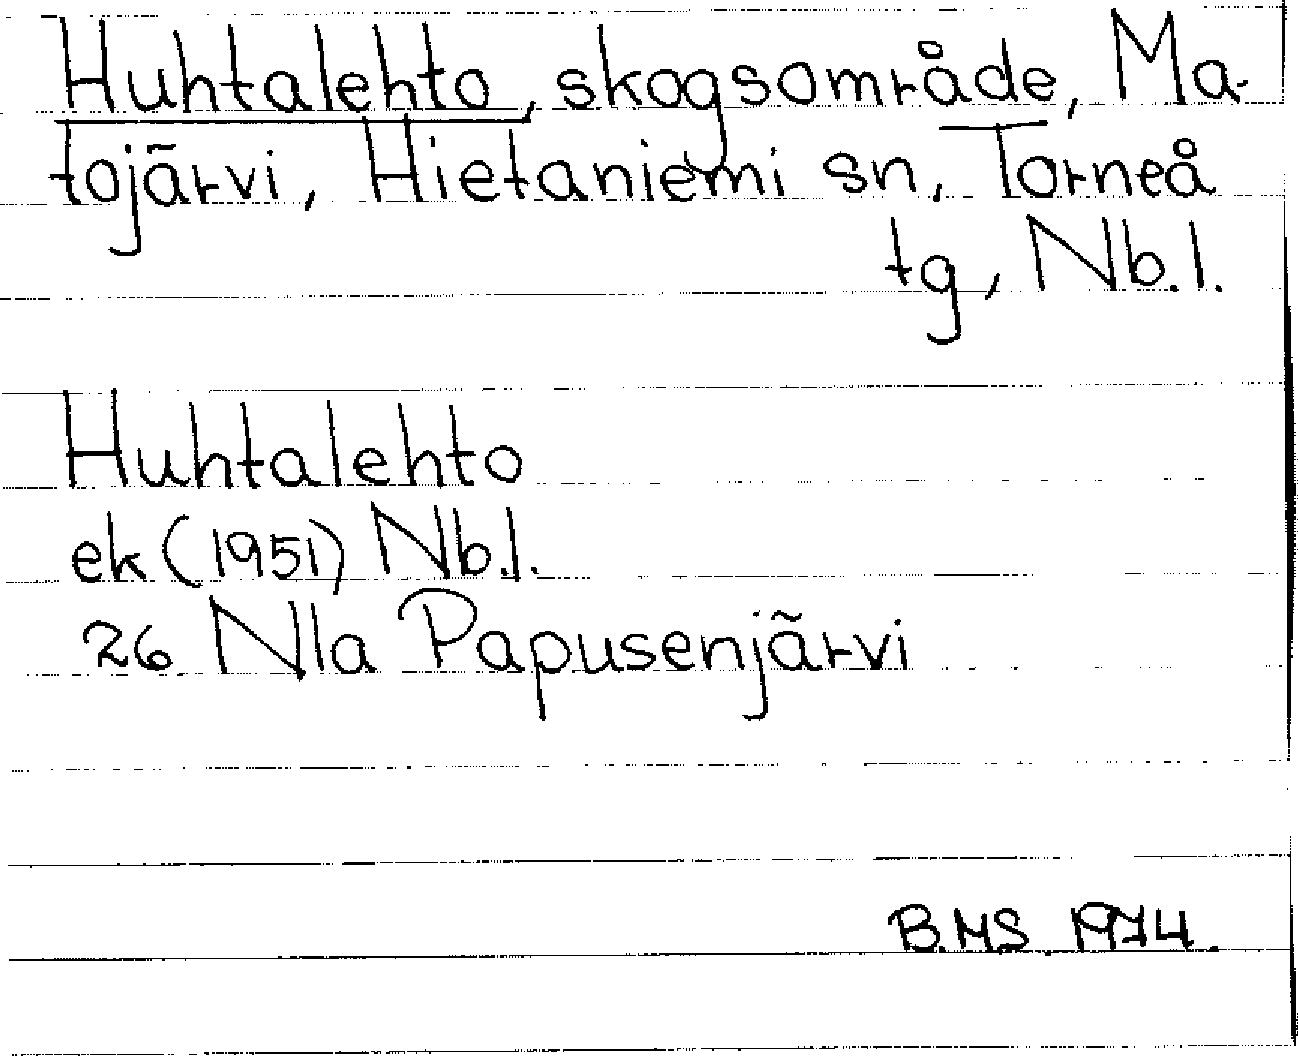 Huhtalehto, skogsområde, Ma-
tojärvi, Hietaniemi sn, Torneå
tg, Nb.l.
Huhtalehto
ek (1951) Nb.l.
26 Nla Papusenjärvi
B.MS. 1974.